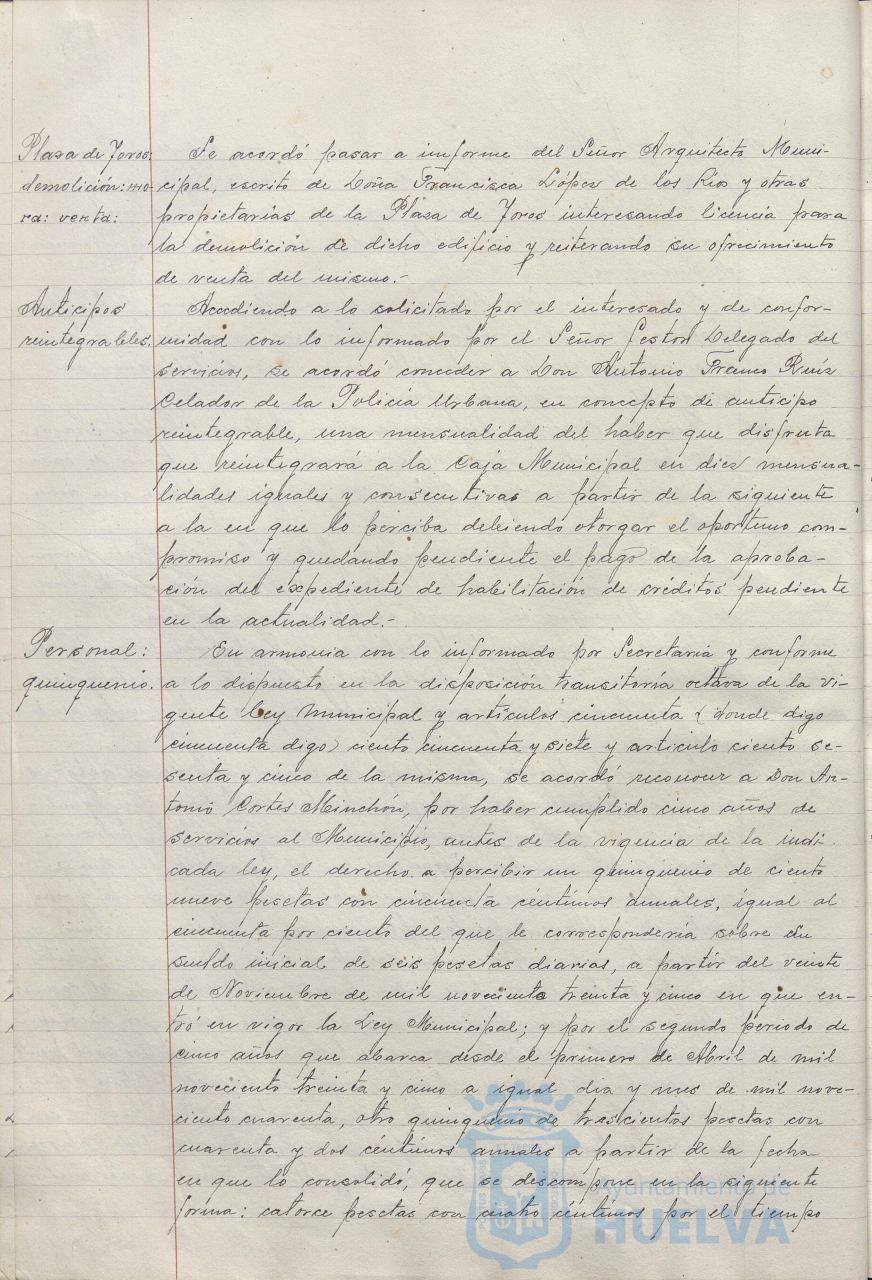 Plaza de Toros:
demolición: mo-
ra: venta:
Se acordó pasar a informe del Señor Arquitecto Muni-
cipal, escrito de Doña Francisca López de los Ríos y otras
propietarias de la Plaza de Toros interesando licencia para
la demolición de dicho edificio y reiterando su ofrecimiento
de venta del mismo.-
Anticipos
reintegrables.
Accediendo a lo solicitado por el interesado y de confor-
midad con lo informado por el Señor Gestor Delegado del
servicios, se acordó conceder a Don Antonio Franco Ruíz
Celador de la Policía Urbana, en concepto de anticipo
reintegrable, una mensualidad del haber que disfruta
que reintegrará a la Caja Municipal en diez mensua-
lidades iguales y consecutivas a partir de la siguiente
a la en que lo perciba debiendo otorgar el oportuno com-
promiso y quedando pendiente el pago de la aproba-
ción del expediente de habilitación de créditos pendiente
en la actualidad.-
Personal:
quinquenio.
En armonia con lo informado por Secretaría y conforme
a lo dispuesto en la disposición transitoría octava de la vi-
gente ley Municipal y artículos cincuenta (donde digo
cincuenta digo) ciento cincuenta y siete y articulo ciento se-
senta y cinco de la misma, se acordó reconocer a Don An-
tonio Cortes Minchón, por haber cumplido cinco años de
servicios al Municipio, antes de la vigencia de la indi-
cada ley, el derecho a percibir un quinquenio de ciento
nueve pesetas con cincuenta céntimos annales, igual al
cincuenta por ciento del que le correspondería sobre un
sueldo inicial de seis pesetas diarias, a partir del veinte
de Noviembre de mil novecientos treinta y cinco en que en-
tró en vigor la Ley Municipal; y por el segundo periodo de
cinco años que abarca desde el primero de Abril de mil
noveciento treinta y cinco a igual dia y mes de mil nove-
ciento cuarenta, otro quinquenio de trescientos pesetas con
cuarenta y dos céntimos annales a partir de la fecha
en que lo consolidó, que se descompone en la siguiente
forma: catorce pesetas con cuatro centimos por el tiempo
Ayuntamiento de
HUELVA